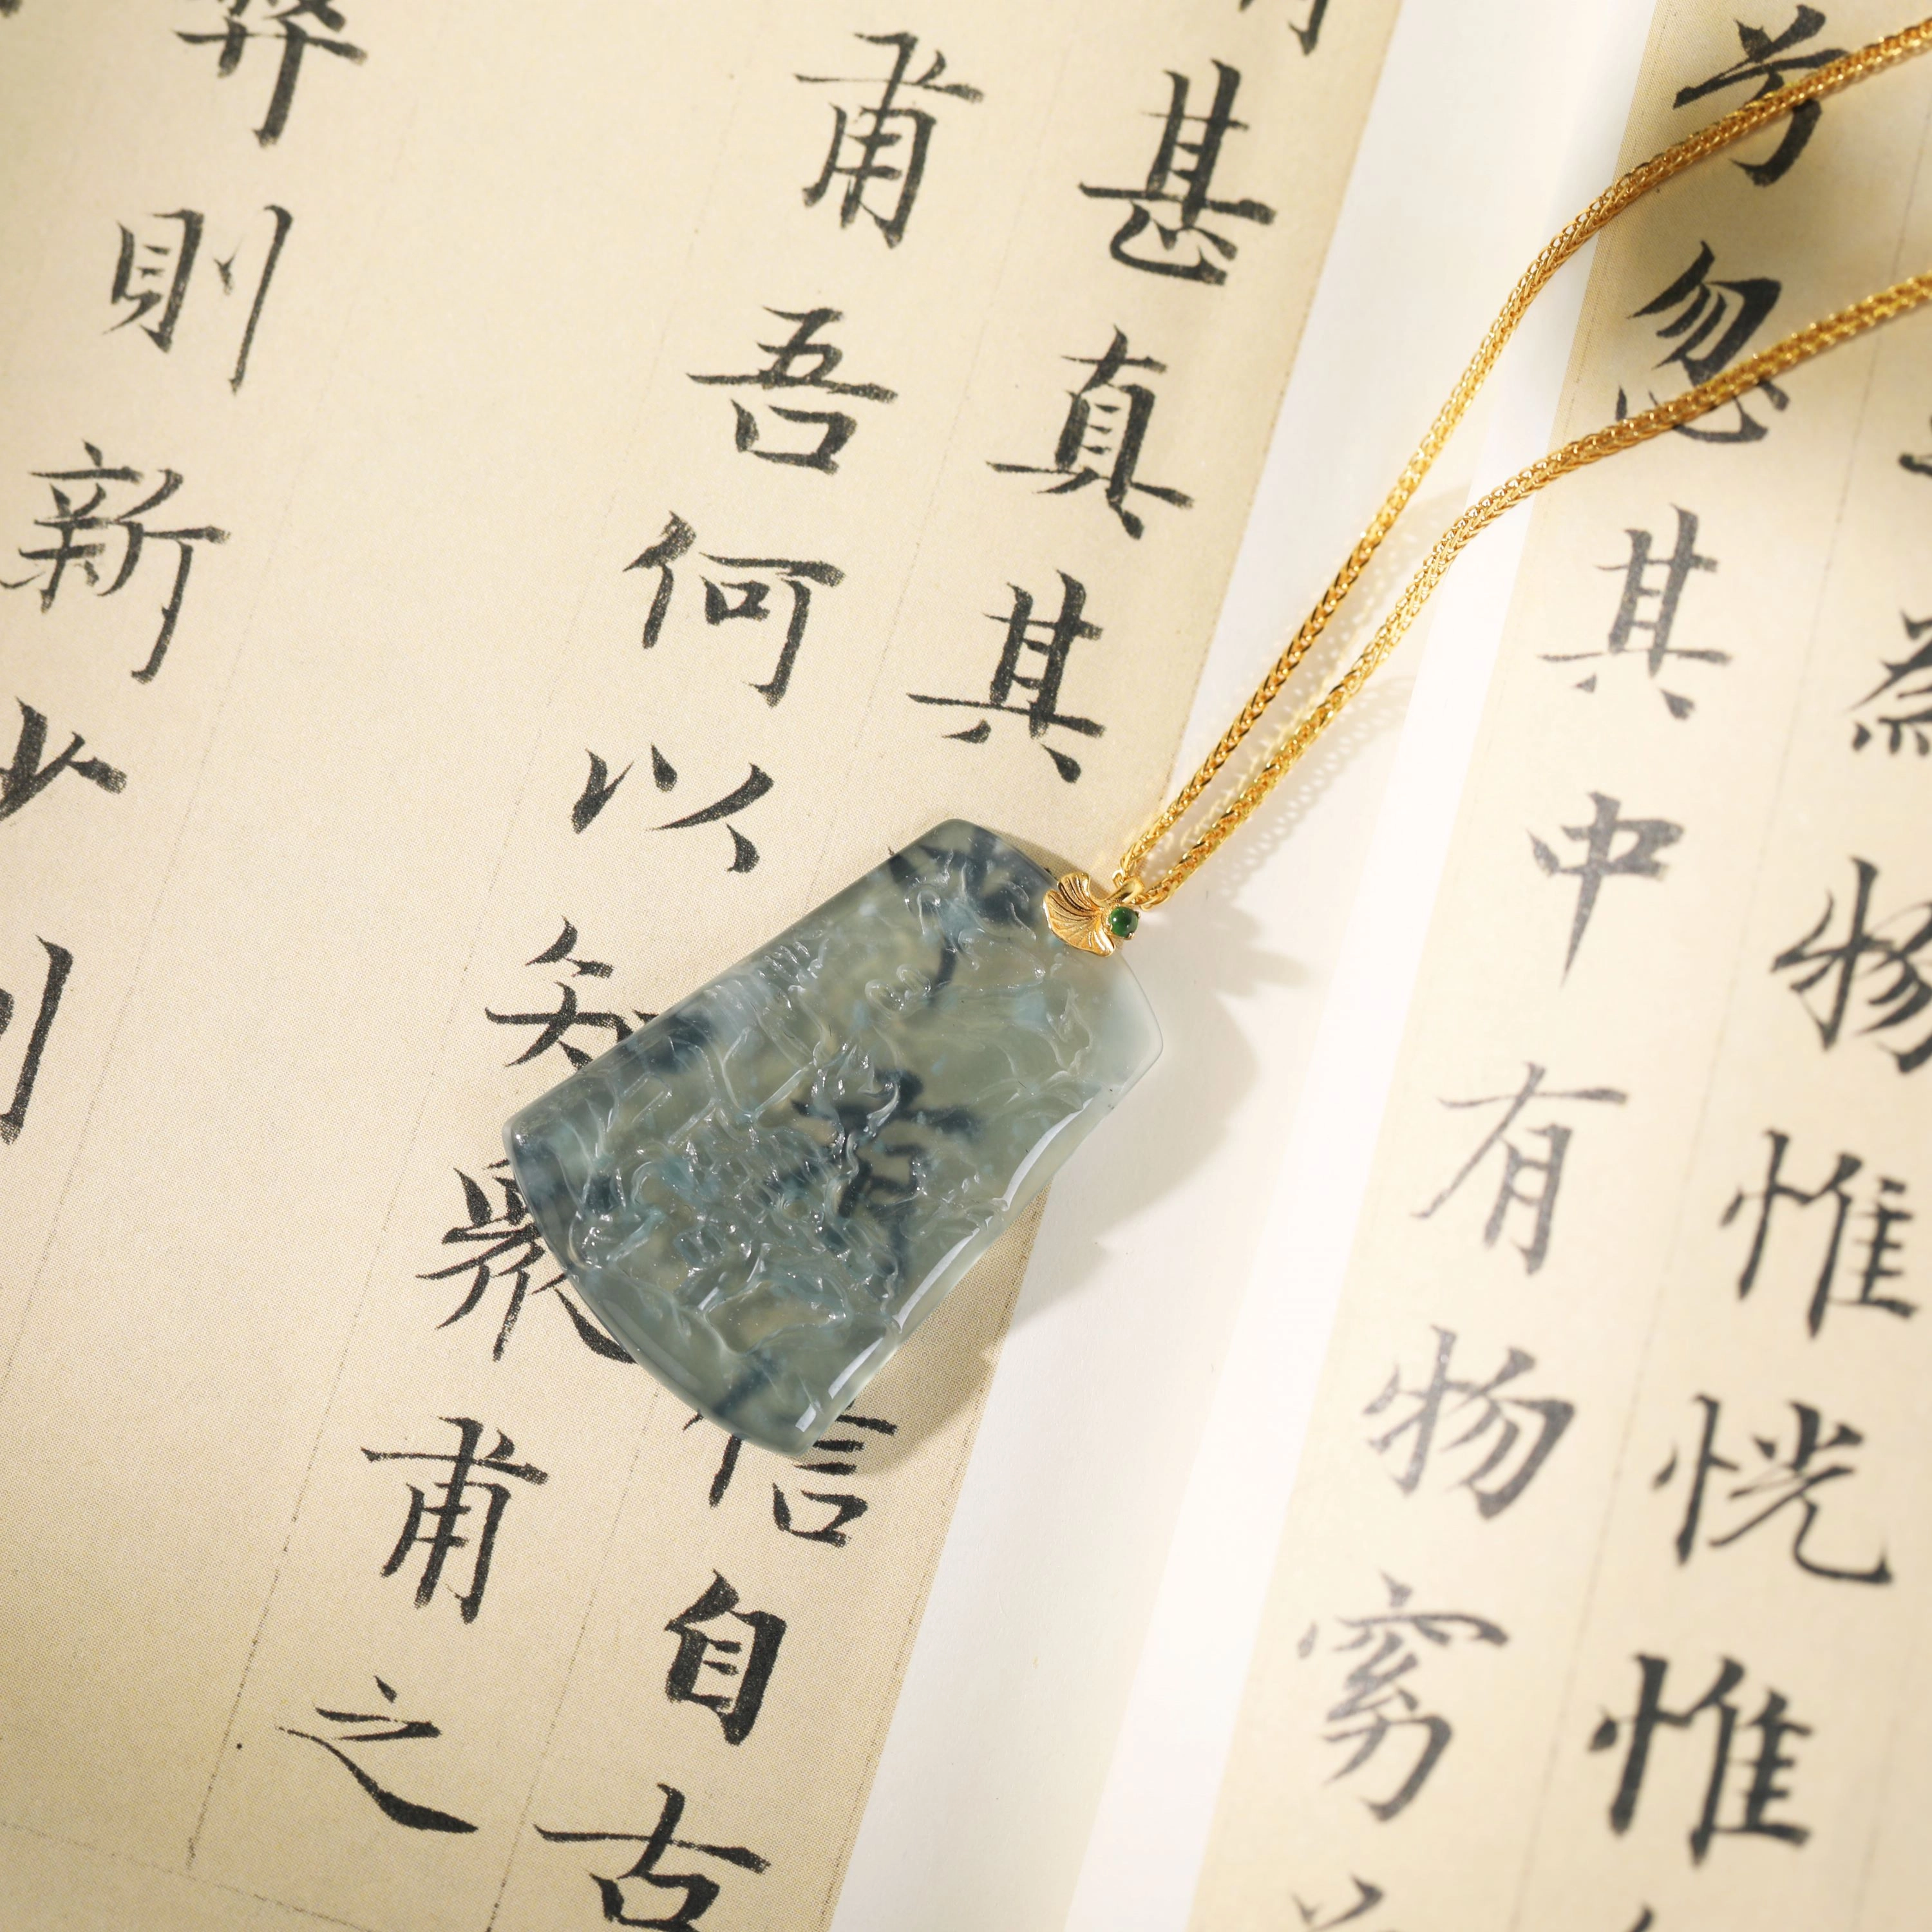 為物惟恍惟
兮忽其中有物窈
甚真其信自古
甫吾何以知衆甫之
則新少